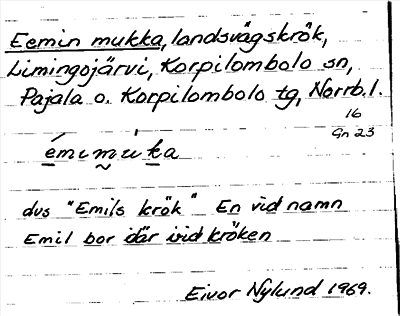 Eemin mukka, landsvägskrök,
Limingojärvi, Korpilombolo sn,
Pajala o. Korpilombolo tg, Norrb. l.
16
Gn 23
émimuka
dvs "Emils krök" En vid namn
Emil bor där vid kröken
Eivor Nylund 1969.